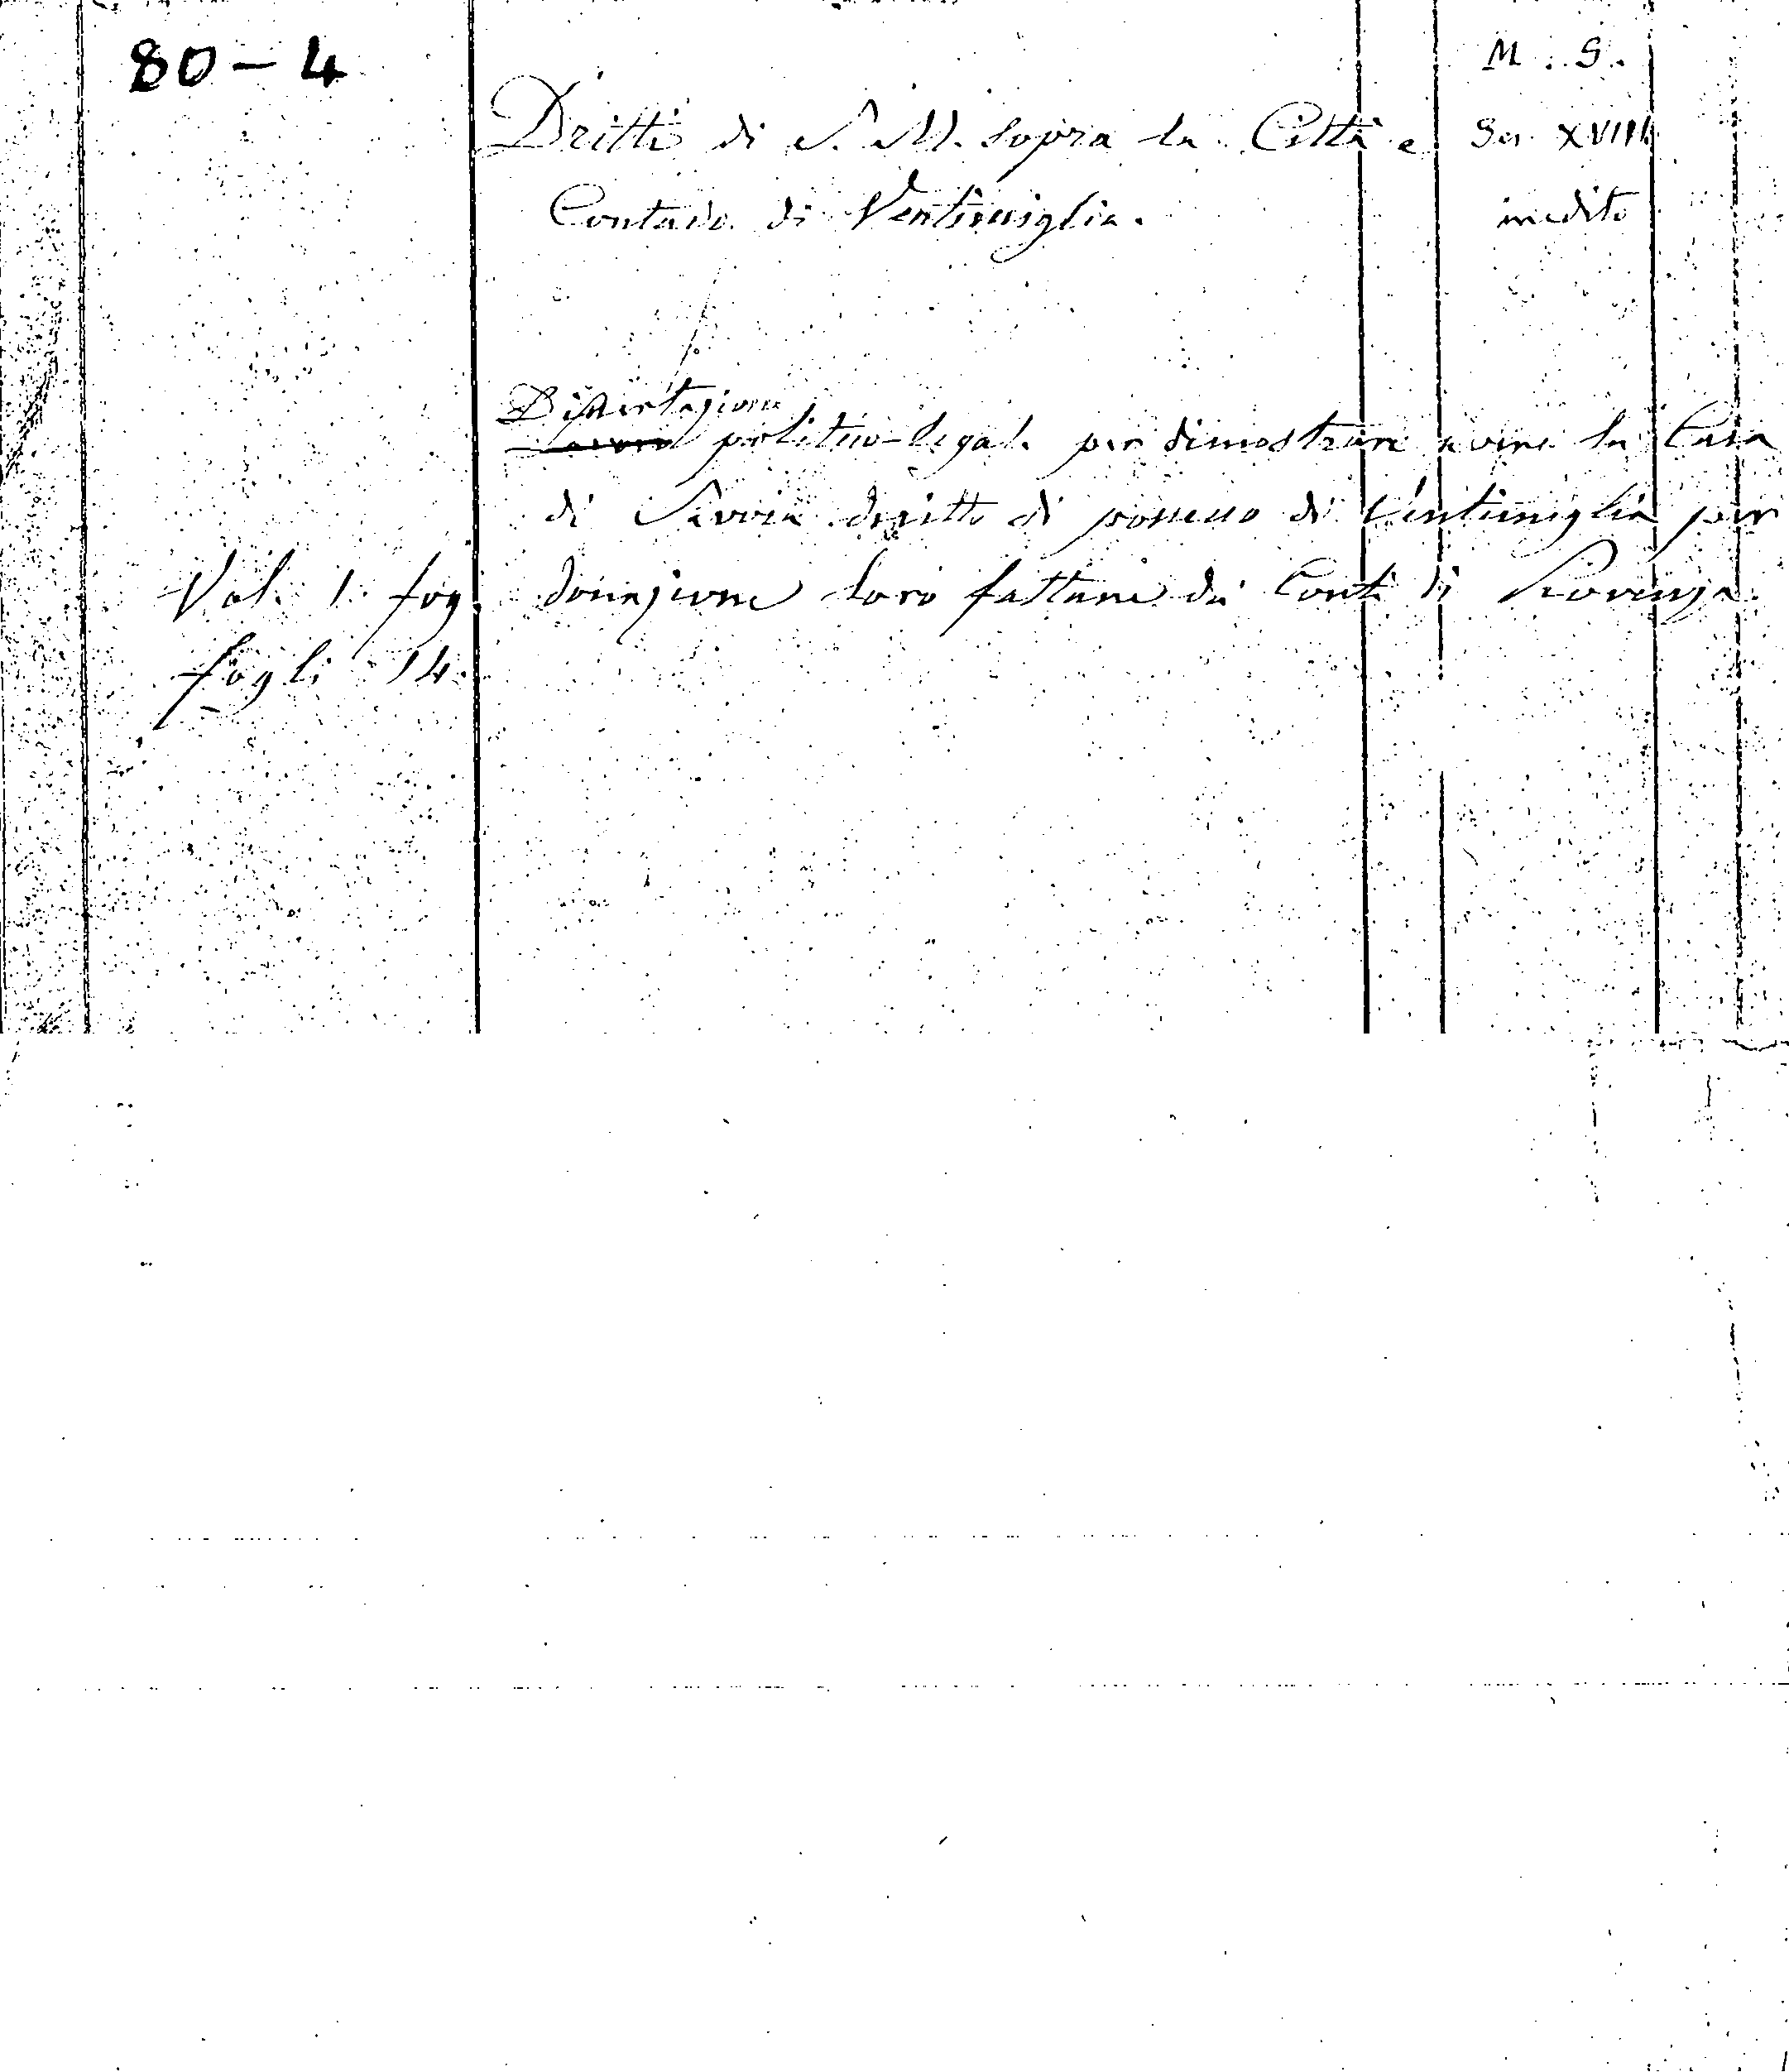 80-4
M. S.
Dritti di S. M. sopra la Città e
Sec. XVIII
Contado di Ventimiglia.
inedito
Dissertazione
politico-legale per dimostrare avere la Casa
di Savoia diritto di possesso di Ventimiglia per
Vol. 1. fog. donazione loro fattane dai Conti di Provenza.
fogli 14.